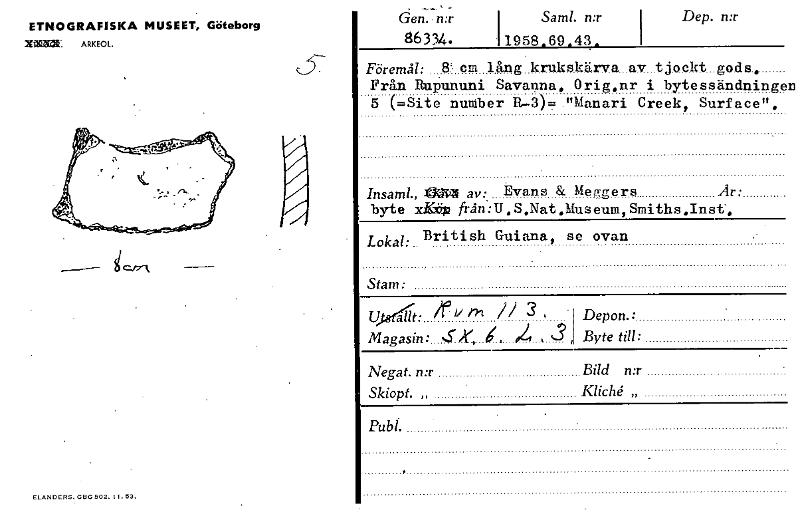 ETNOGRAFISKA MUSEET, Göteborg
ARKEOL.
5
8cm
ELANDERS. GBG 802. 11. 53.
Gen. n:r Saml. n:r Dep. n:r
86334. 1958.69.43.
Föremål: 8 cm lång krukskärva av tjockt gods.
Från Rupununi Savanna. Orig.nr i bytessändningen
5 (=Site number R-3)= "Manari Creek, Surface".
Insaml., av: Evans & Meggers År:
byte från: U.S.Nat.Museum,Smiths.Inst.
Lokal: British Guiana, se ovan
Stam:
Utställt: Rum 113. Depon.:
Magasin: SX. 6. L. 3 Byte till:
Negat. n:r Bild n:r
Skiopt. „ Kliché „
Publ.